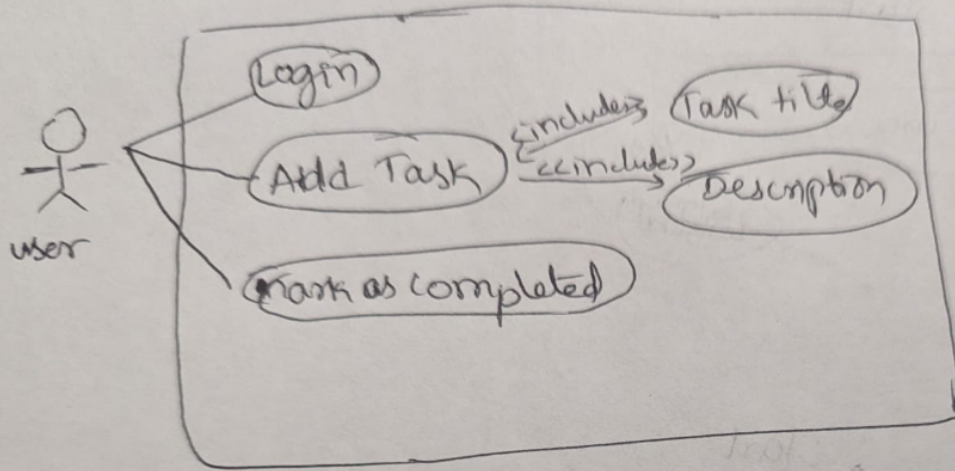 Login
Add Task
<<includes>>
Task title
<<includes>>
Description
Mark as completed
user